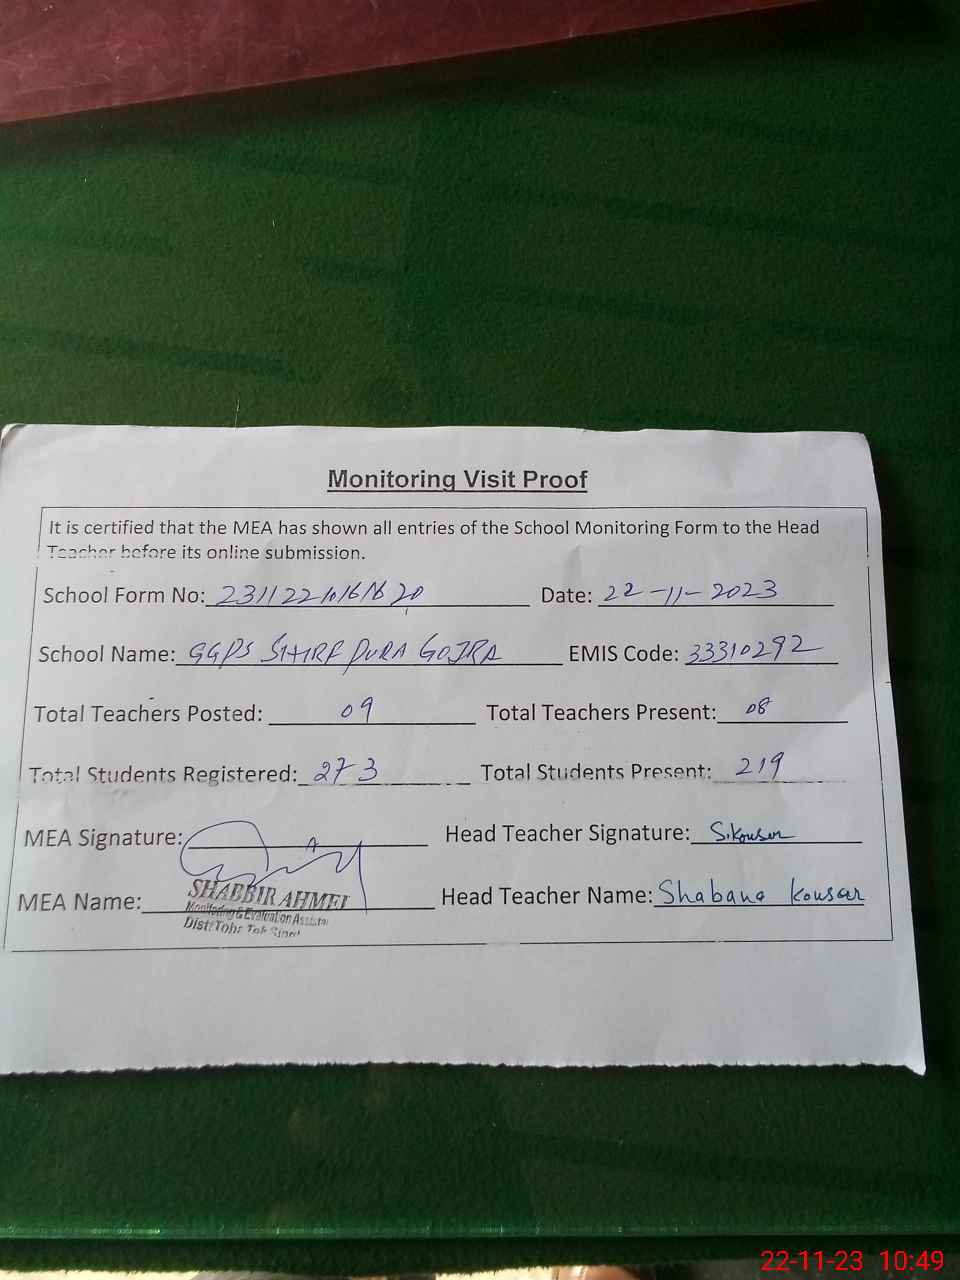 Monitoring Visit Proof
It is certified that the MEA has shown all entries of the School Monitoring Form to the Head
Teacher before its online submission.
School Form No: Date: 22-11-2023
School Name: GGPS PURA GOJRA EMIS Code: 33310292
Total Teachers Posted: 09 Total Teachers Present: 08
Total Students Registered: 273 Total Students Present: 219
MEA Signature: Head Teacher Signature: S.Kousar
MEA Name: SHABBIR AHMED Head Teacher Name: Shabana Kousar
Monitoring & Evaluation Assistant
Distt: Toba Tek Singh
22-11-23 10:49